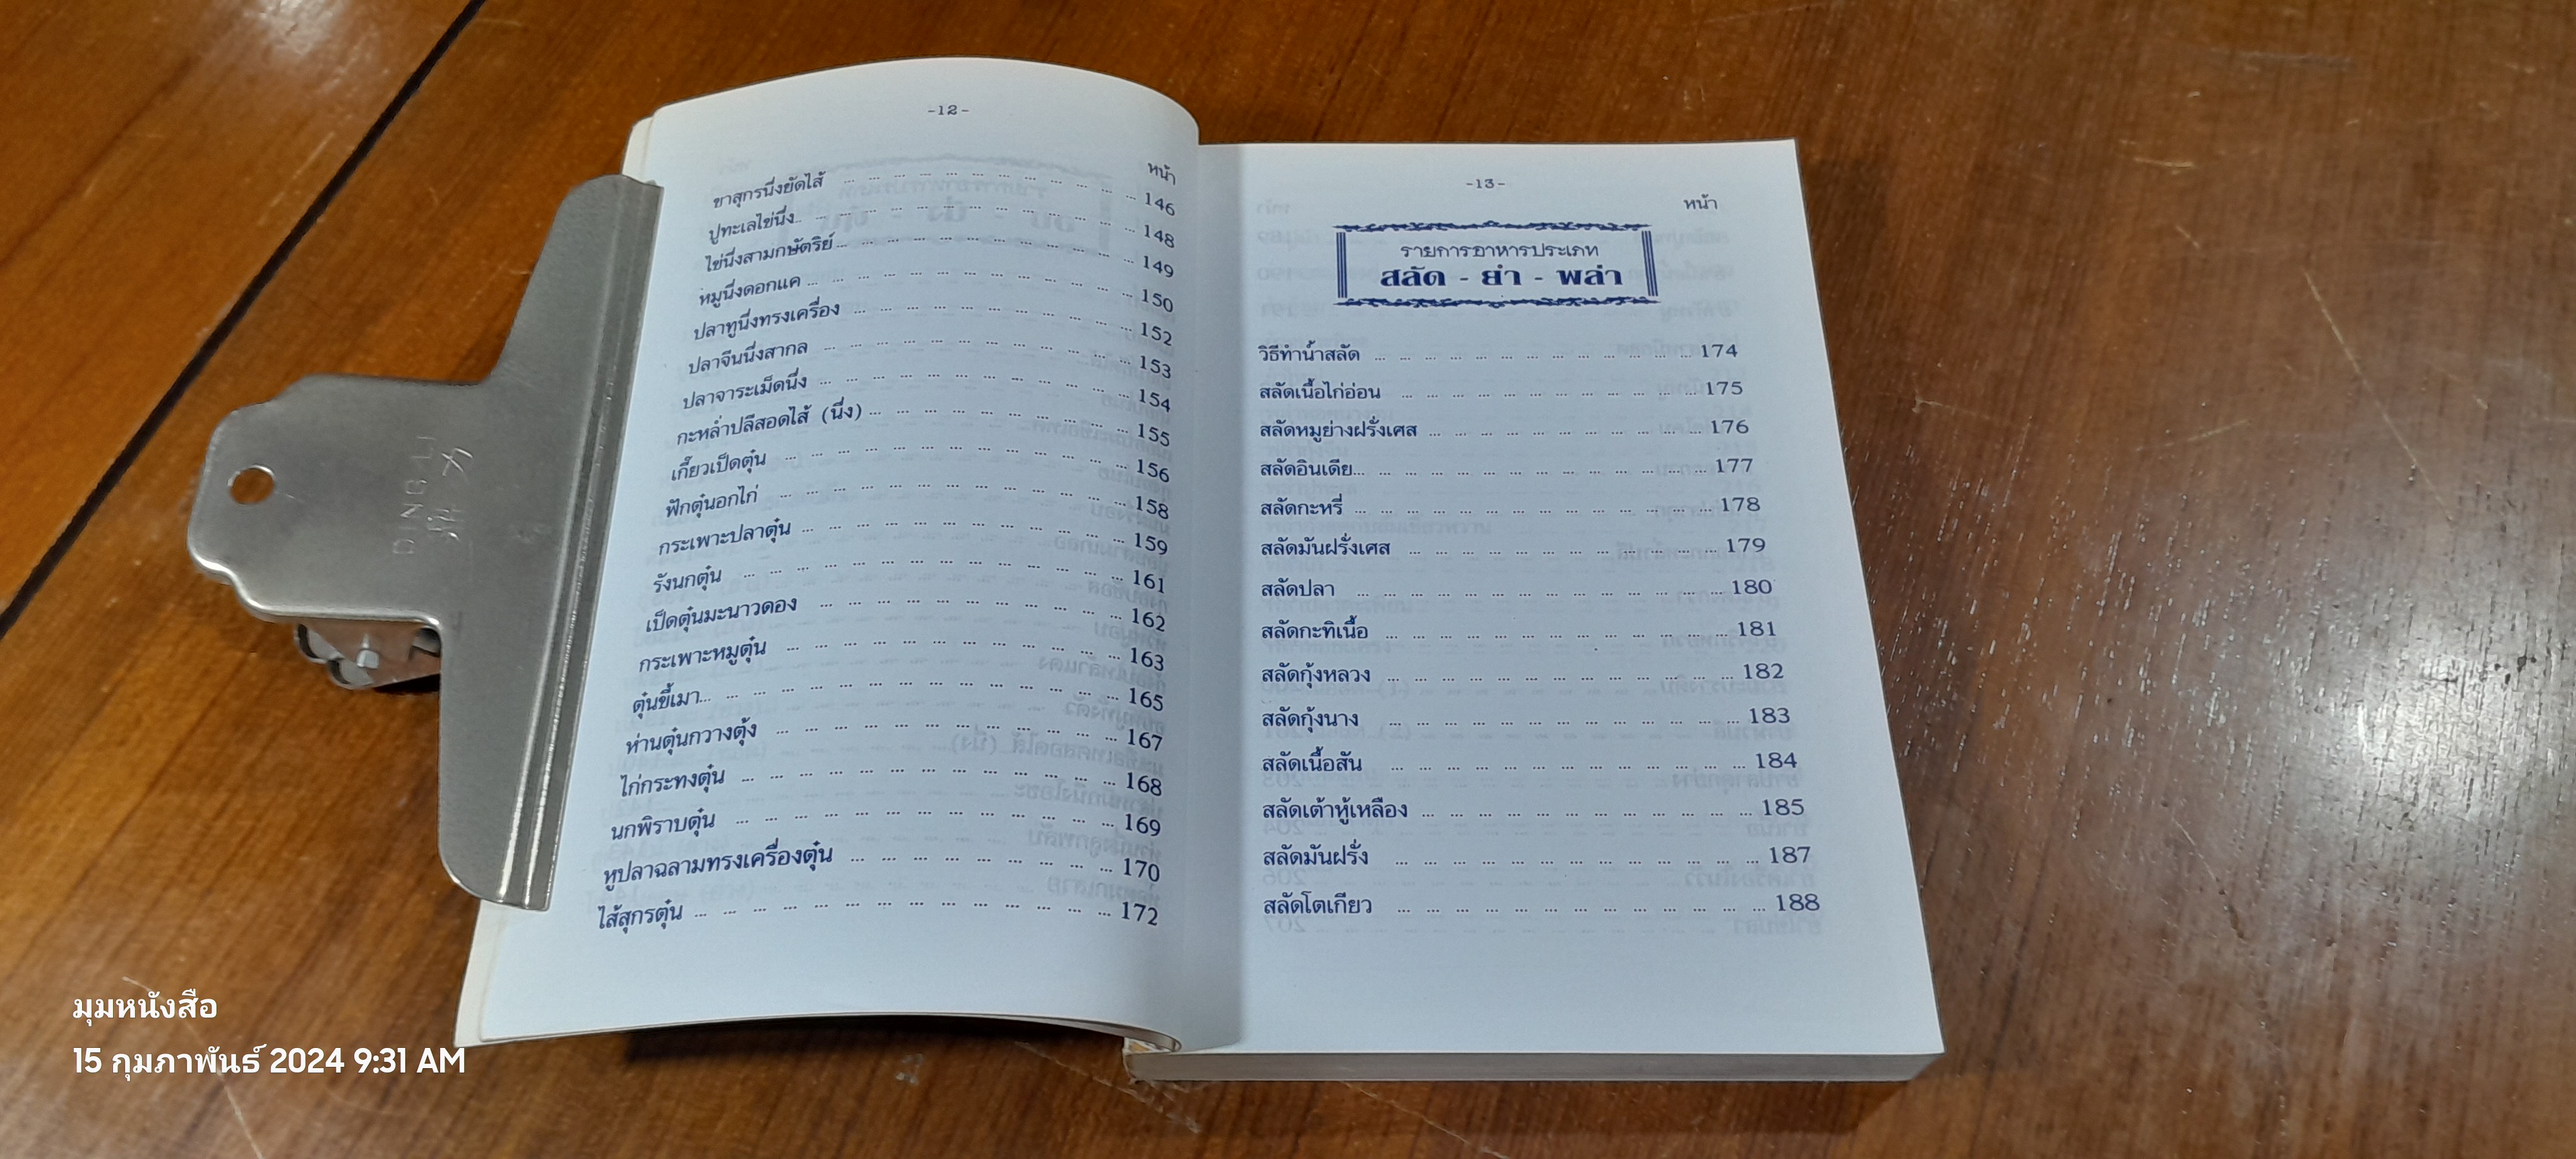 -12-
หน้า
ขาสุกรนึ่งยัดไส้ ... 146
ปูทะเลไข่นึ่ง ... 148
ไข่นึ่งสามกษัตริย์ ... 149
หมูนึ่งดอกแค ... 150
ปลาทูนึ่งทรงเครื่อง ... 152
ปลาจีนนึ่งสากล ... 153
ปลาจาระเม็ดนึ่ง ... 154
กะหล่ำปลีสอดไส้ (นึ่ง) ... 155
เกี๊ยวเป็ดตุ๋น ... 156
ฟักตุ๋นอกไก่ ... 158
กระเพาะปลาตุ๋น ... 159
รังนกตุ๋น ... 161
เป็ดตุ๋นมะนาวดอง ... 162
กระเพาะหมูตุ๋น ... 163
ตุ๋นขี้เมา ... 165
ห่านตุ๋นกวางตุ้ง ... 167
ไก่กระทงตุ๋น ... 168
นกพิราบตุ๋น ... 169
หูปลาฉลามทรงเครื่องตุ๋น ... 170
ไส้สุกรตุ๋น ... 172
-13-
หน้า
รายการอาหารประเภท
สลัด - ยำ - พล่า
วิธีทำน้ำสลัด ... 174
สลัดเนื้อไก่อ่อน ... 175
สลัดหมูย่างฝรั่งเศส ... 176
สลัดอินเดีย ... 177
สลัดกะหรี่ ... 178
สลัดมันฝรั่งเศส ... 179
สลัดปลา ... 180
สลัดกะทิเนื้อ ... 181
สลัดกุ้งหลวง ... 182
สลัดกุ้งนาง ... 183
สลัดเนื้อสัน ... 184
สลัดเต้าหู้เหลือง ... 185
สลัดมันฝรั่ง ... 187
สลัดโตเกียว ... 188
มุมหนังสือ
15 กุมภาพันธ์ 2024 9:31 AM